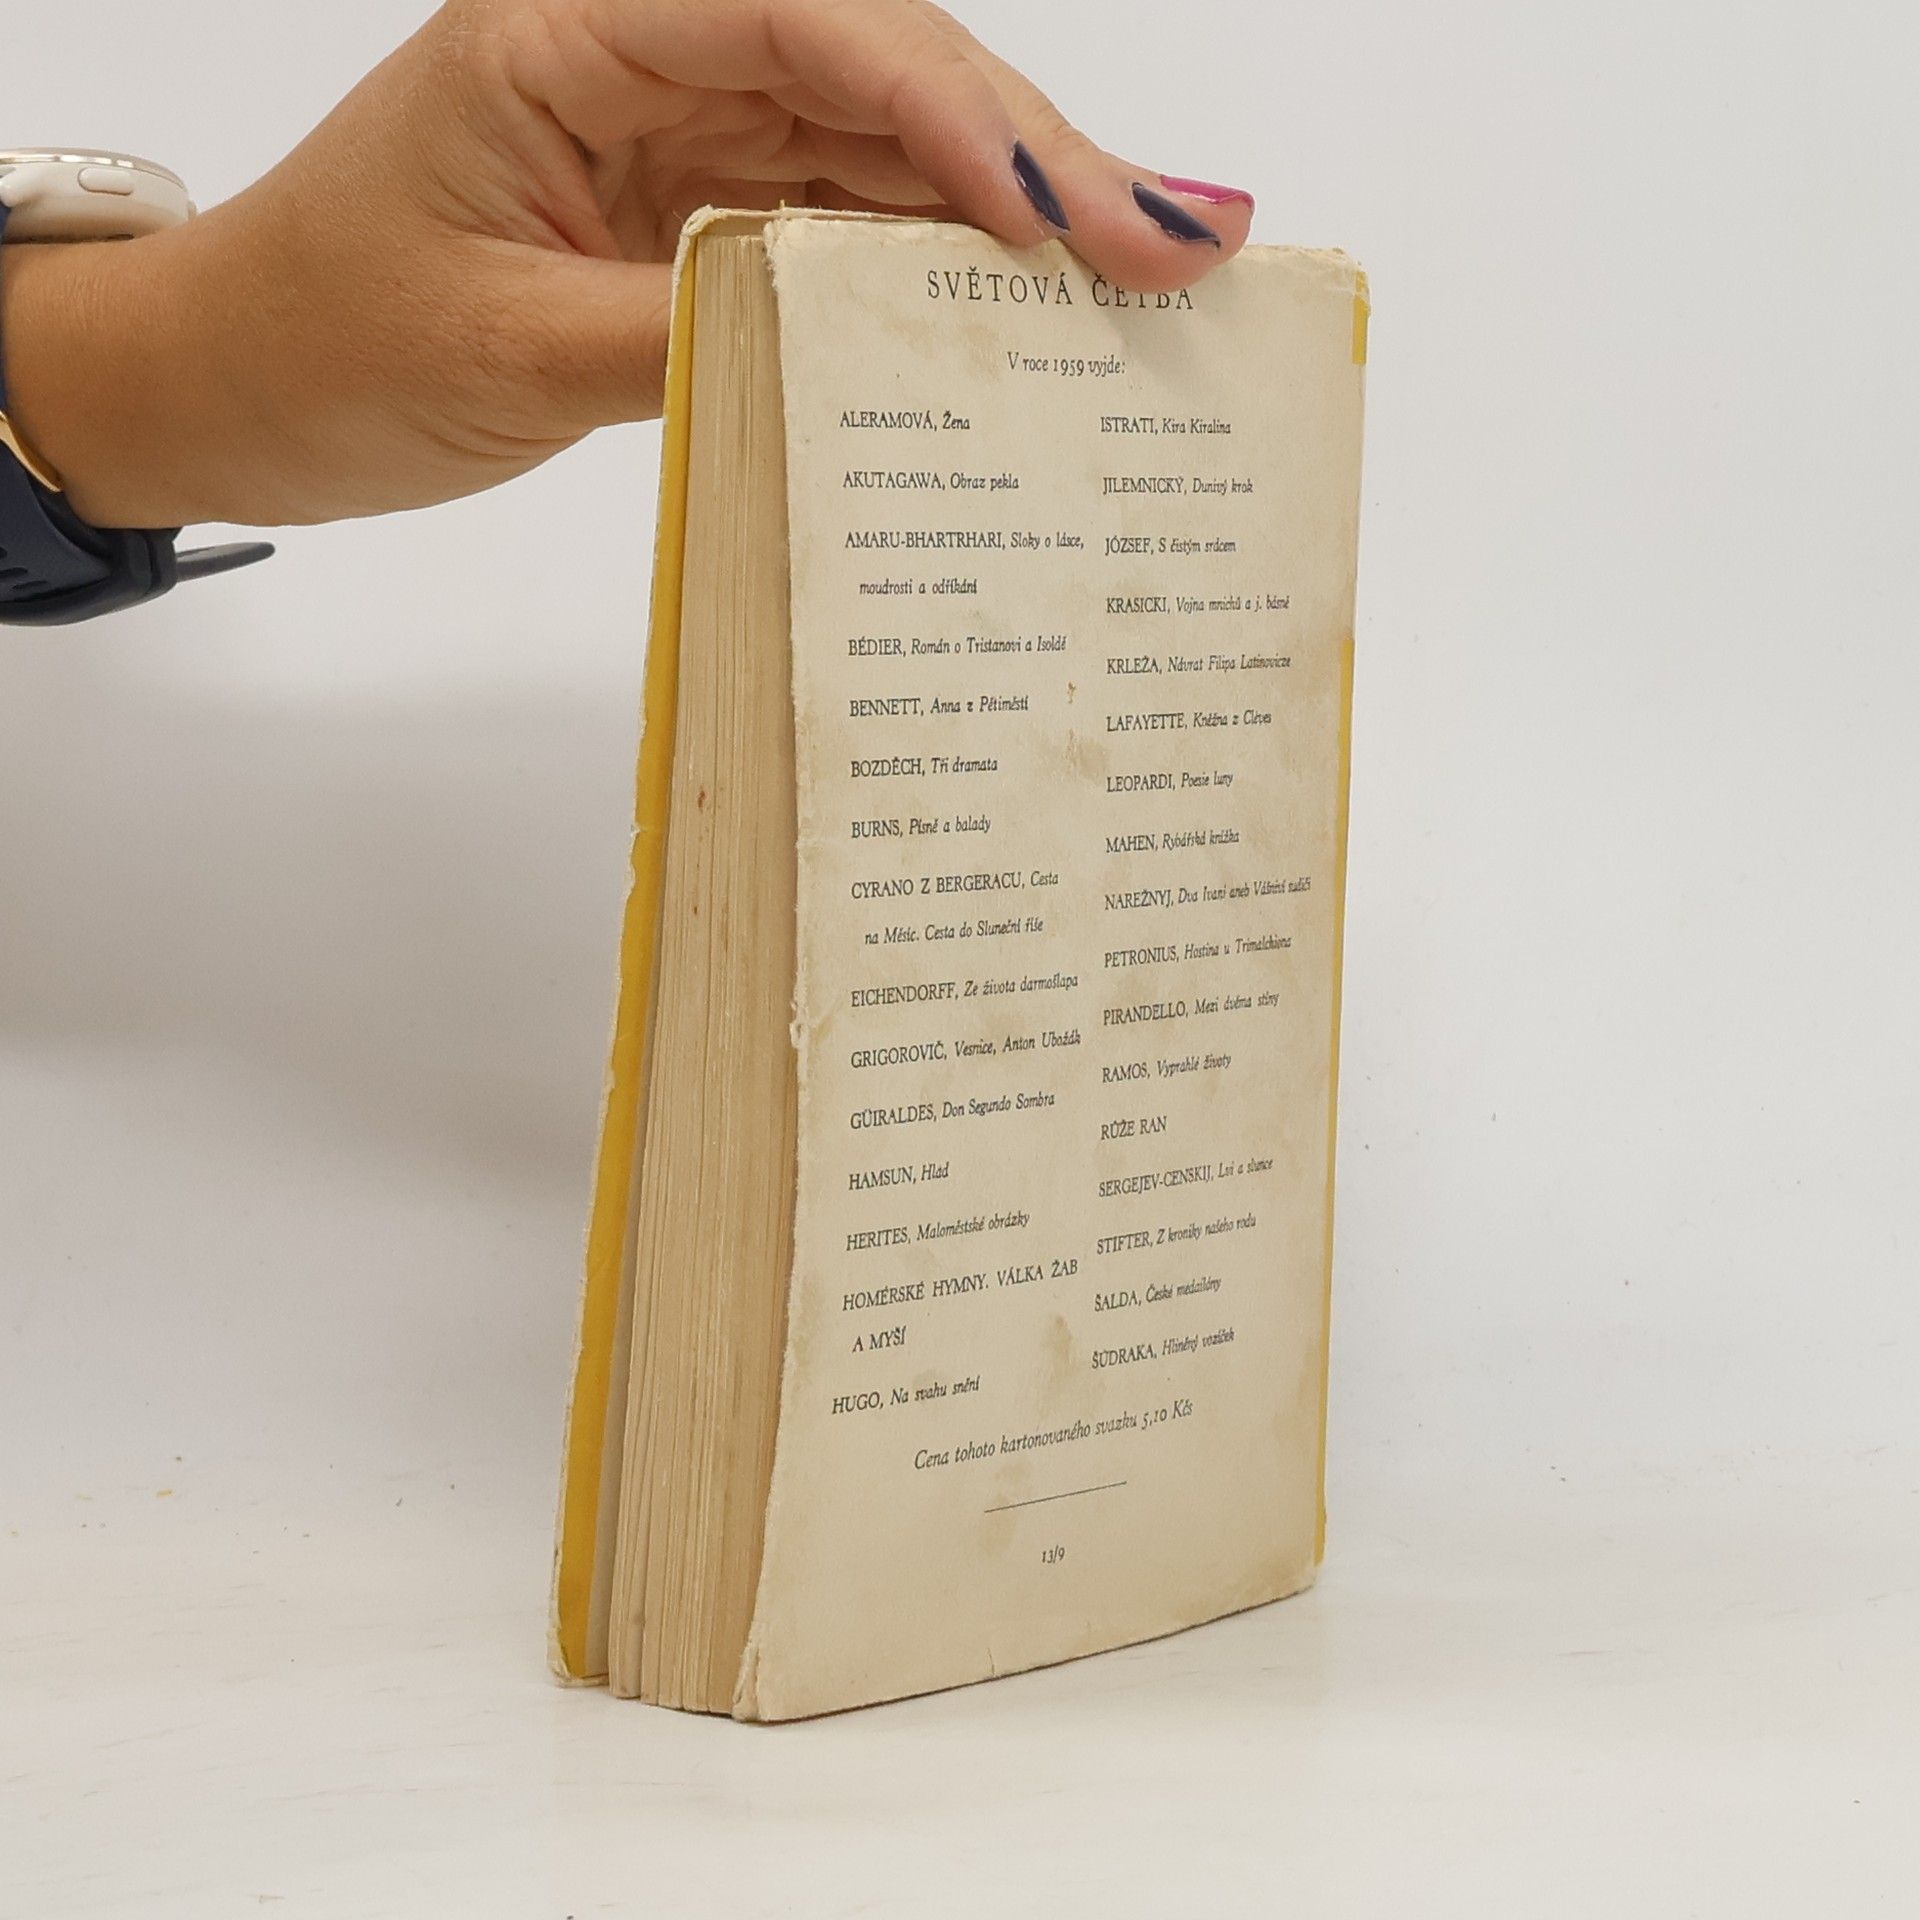 SVĚTOVÁ ČETBA
V roce 1959 vyjde:
ALERAMOVÁ, Žena
AKUTAGAWA, Obraz pekla
AMARU-BHARTRHARI, Sloky o lásce,
moudrosti a odříkání
BÉDIER, Román o Tristanovi a Isoldě
BENNETT, Anna z Pětiměstí
BOZDĚCH, Tři dramata
BURNS, Písně a balady
CYRANO Z BERGERACU, Cesta
na Měsíc. Cesta do Sluneční říše
EICHENDORFF, Ze života darmošlapa
GRIGOROVIČ, Vesnice, Anton Ubožák
GÜIRALDES, Don Segundo Sombra
HAMSUN, Hlad
HERITES, Maloměstské obrázky
HOMÉRSKÉ HYMNY. VÁLKA ŽAB
A MYŠÍ
HUGO, Na svahu snění
ISTRATI, Kira Kiralina
JILEMNICKÝ, Dunivý krok
JÓZSEF, S čistým srdcem
KRASICKI, Vojna mnichů a j. básně
KRLEŽA, Návrat Filipa Latinovicze
LAFAYETTE, Kněžna z Clèves
LEOPARDI, Poesie luny
MAHEN, Rybářská knížka
NAREŽNYJ, Dva Ivani aneb Vášniví sudiči
PETRONIUS, Hostina u Trimalchiona
PIRANDELLO, Mezi dvěma stíny
RAMOS, Vyprahlé životy
RŮŽE RAN
SERGEJEV-CENSKIJ, Lvi a slunce
STIFTER, Z kroniky našeho rodu
ŠALDA, České medailóny
ŠÚDRAKA, Hliněný vozíček
Cena tohoto kartonovaného svazku 5,10 Kčs
13/9